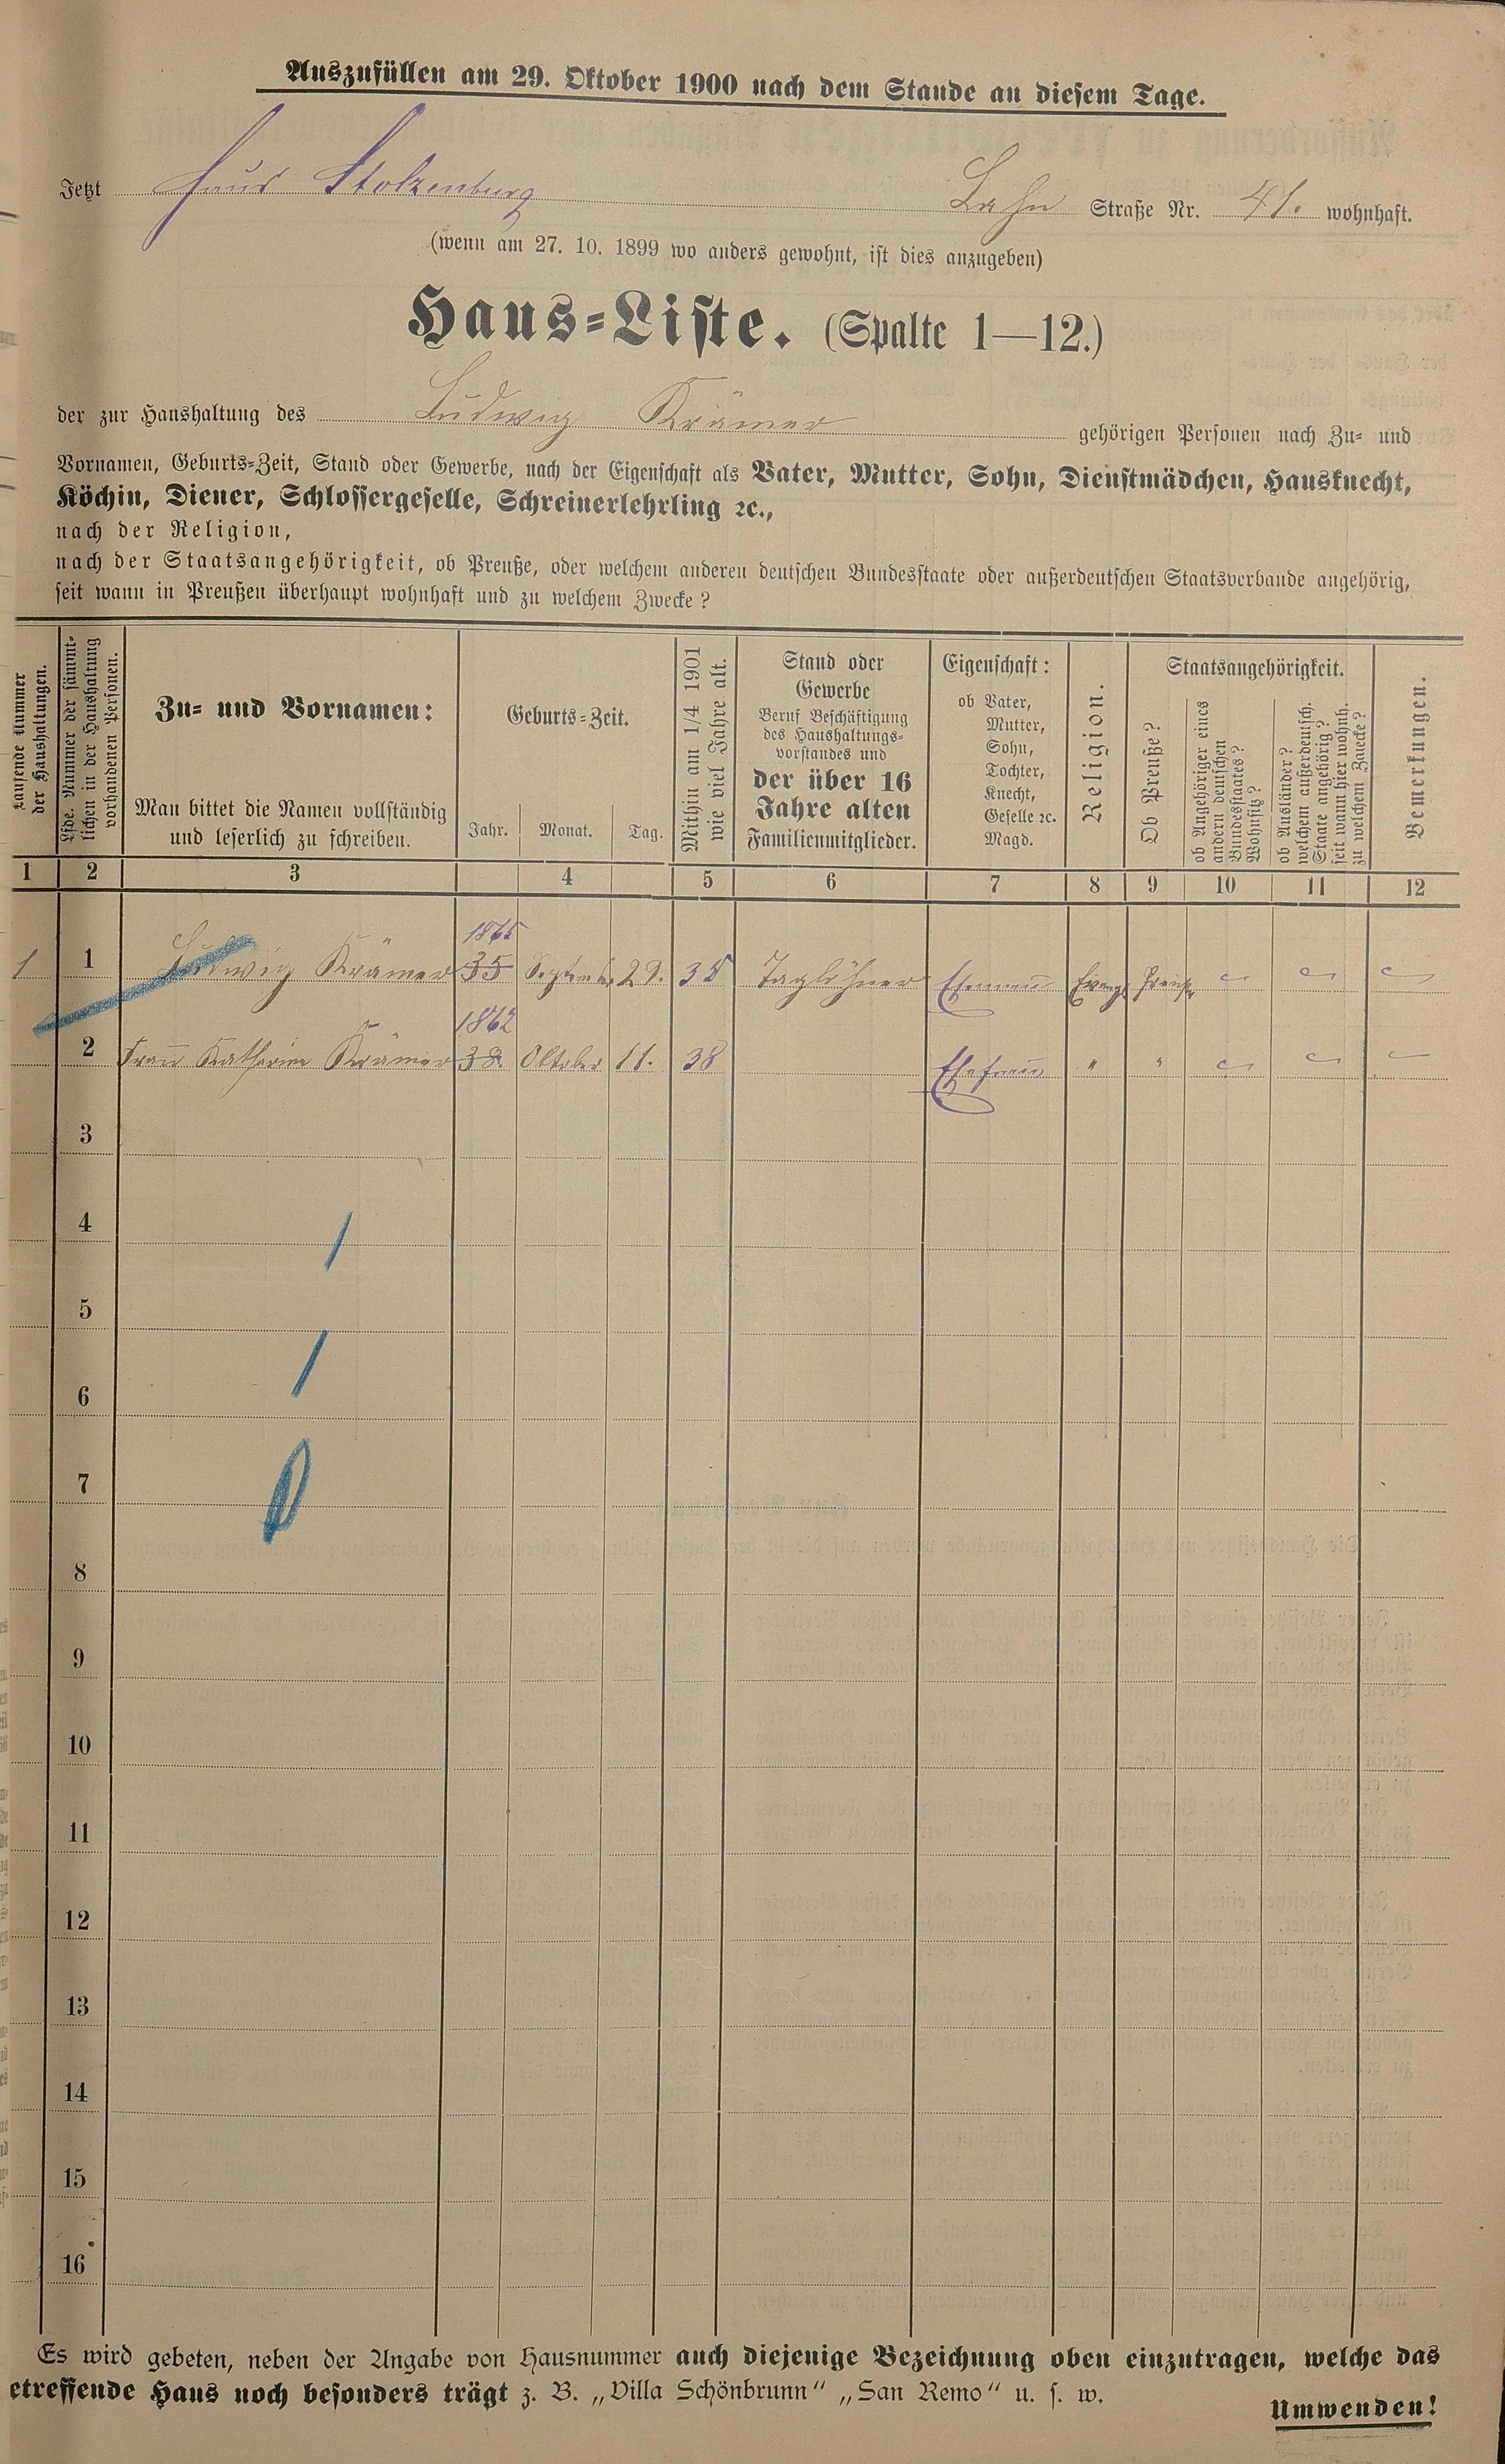 Auszufüllen am 29. Oktober 1900 nach dem Stande an diesem Tage.
Jetzt Haus Stolzenburg Lahn Straße Nr. 41. wohnhaft.
(wenn am 27. 10. 1899 wo anders gewohnt, ist dies anzugeben)
Haus-Liste. (Spalte 1—12.)
der zur Haushaltung des Ludwig Krämer gehörigen Personen nach Zu- und
Vornamen, Geburts-Zeit, Stand oder Gewerbe, nach der Eigenschaft als Vater, Mutter, Sohn, Dienstmädchen, Hausknecht,
Köchin, Diener, Schlossergeselle, Schreinerlehrling ꝛc.,
nach der Religion,
nach der Staatsangehörigkeit, ob Preuße, oder welchem anderen deutschen Bundesstaate oder außerdeutschen Staatsverbande angehörig,
seit wann in Preußen überhaupt wohnhaft und zu welchem Zwecke?
Laufende Nummer
der Haushaltungen.
Lfde. Nummer der sämmt-
lichen in der Haushaltung
vorhandenen Personen.
Zu- und Vornamen:
Man bittet die Namen vollständig
und leserlich zu schreiben.
Geburts-Zeit.
Jahr. Monat. Tag.
Mithin am 1/4 1901
wie viel Jahre alt.
Stand oder
Gewerbe
Beruf Beschäftigung
des Haushaltungs-
vorstandes und
der über 16
Jahre alten
Familienmitglieder.
Eigenschaft:
ob Vater,
Mutter,
Sohn,
Tochter,
Knecht,
Geselle ꝛc.
Magd.
Religion.
Staatsangehörigkeit.
Ob Preuße?
ob Angehöriger eines
andern deutschen
Bundesstaates?
Wohnsitz?
ob Ausländer?
welchem außerdeutsch.
Staate angehörig?
seit wann hier wohnh.
zu welchem Zwecke?
Bemerkungen.
1 2 3 4 5 6 7 8 9 10 11 12
1865
1 1 Ludwig Krämer 35 Septemb. 29. 35 Taglöhner Ehemann Evangl Preuße
1862
2 Frau Katherine Krämer 38. Oktober 11. 38 Ehefrau " "
3
4
5
6
7
8
9
10
11
12
13
14
15
16
Es wird gebeten, neben der Angabe von Hausnummer auch diejenige Bezeichnung oben einzutragen, welche das
etreffende Haus noch besonders trägt z. B. „Villa Schönbrunn“ „San Remo“ u. s. w.
Umwenden!